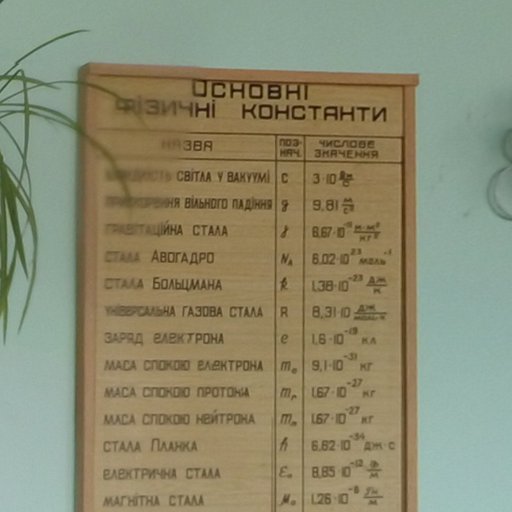 Основні
фізичні константи
Назва поз-нач. числове значення
швидкість світла у вакуумі c 3·10⁸ м/с
прискорення вільного падіння g 9,81 м/с²
гравітаційна стала γ 6,67·10⁻¹¹ н·м²/кг²
стала Авогадро Nᴀ 6,02·10²³ моль⁻¹
стала Больцмана k 1,38·10⁻²³ Дж/К
універсальна газова стала R 8,31·10 Дж/моль·К
заряд електрона e 1,6·10⁻¹⁹ кл
маса спокою електрона mₑ 9,1·10⁻³¹ кг
маса спокою протона mₚ 1,67·10⁻²⁷ кг
маса спокою нейтрона mₙ 1,67·10⁻²⁷ кг
стала Планка h 6,62·10⁻³⁴ Дж·с
електрична стала ε₀ 8,85·10⁻¹² Ф/м
магнітна стала μ₀ 1,26·10⁻⁶ Гн/м